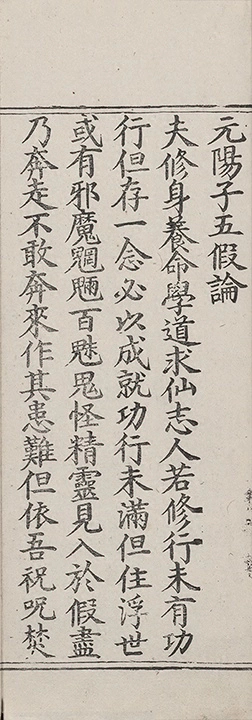 元陽子五假論
夫修身養命學道求仙志人若修行未有功
行但存一念必以成就功行未滿但住浮世
或有邪魔魍魎百魅鬼怪精靈見入於假盡
乃奔走不敢奔來作其患難但依吾祝呪焚